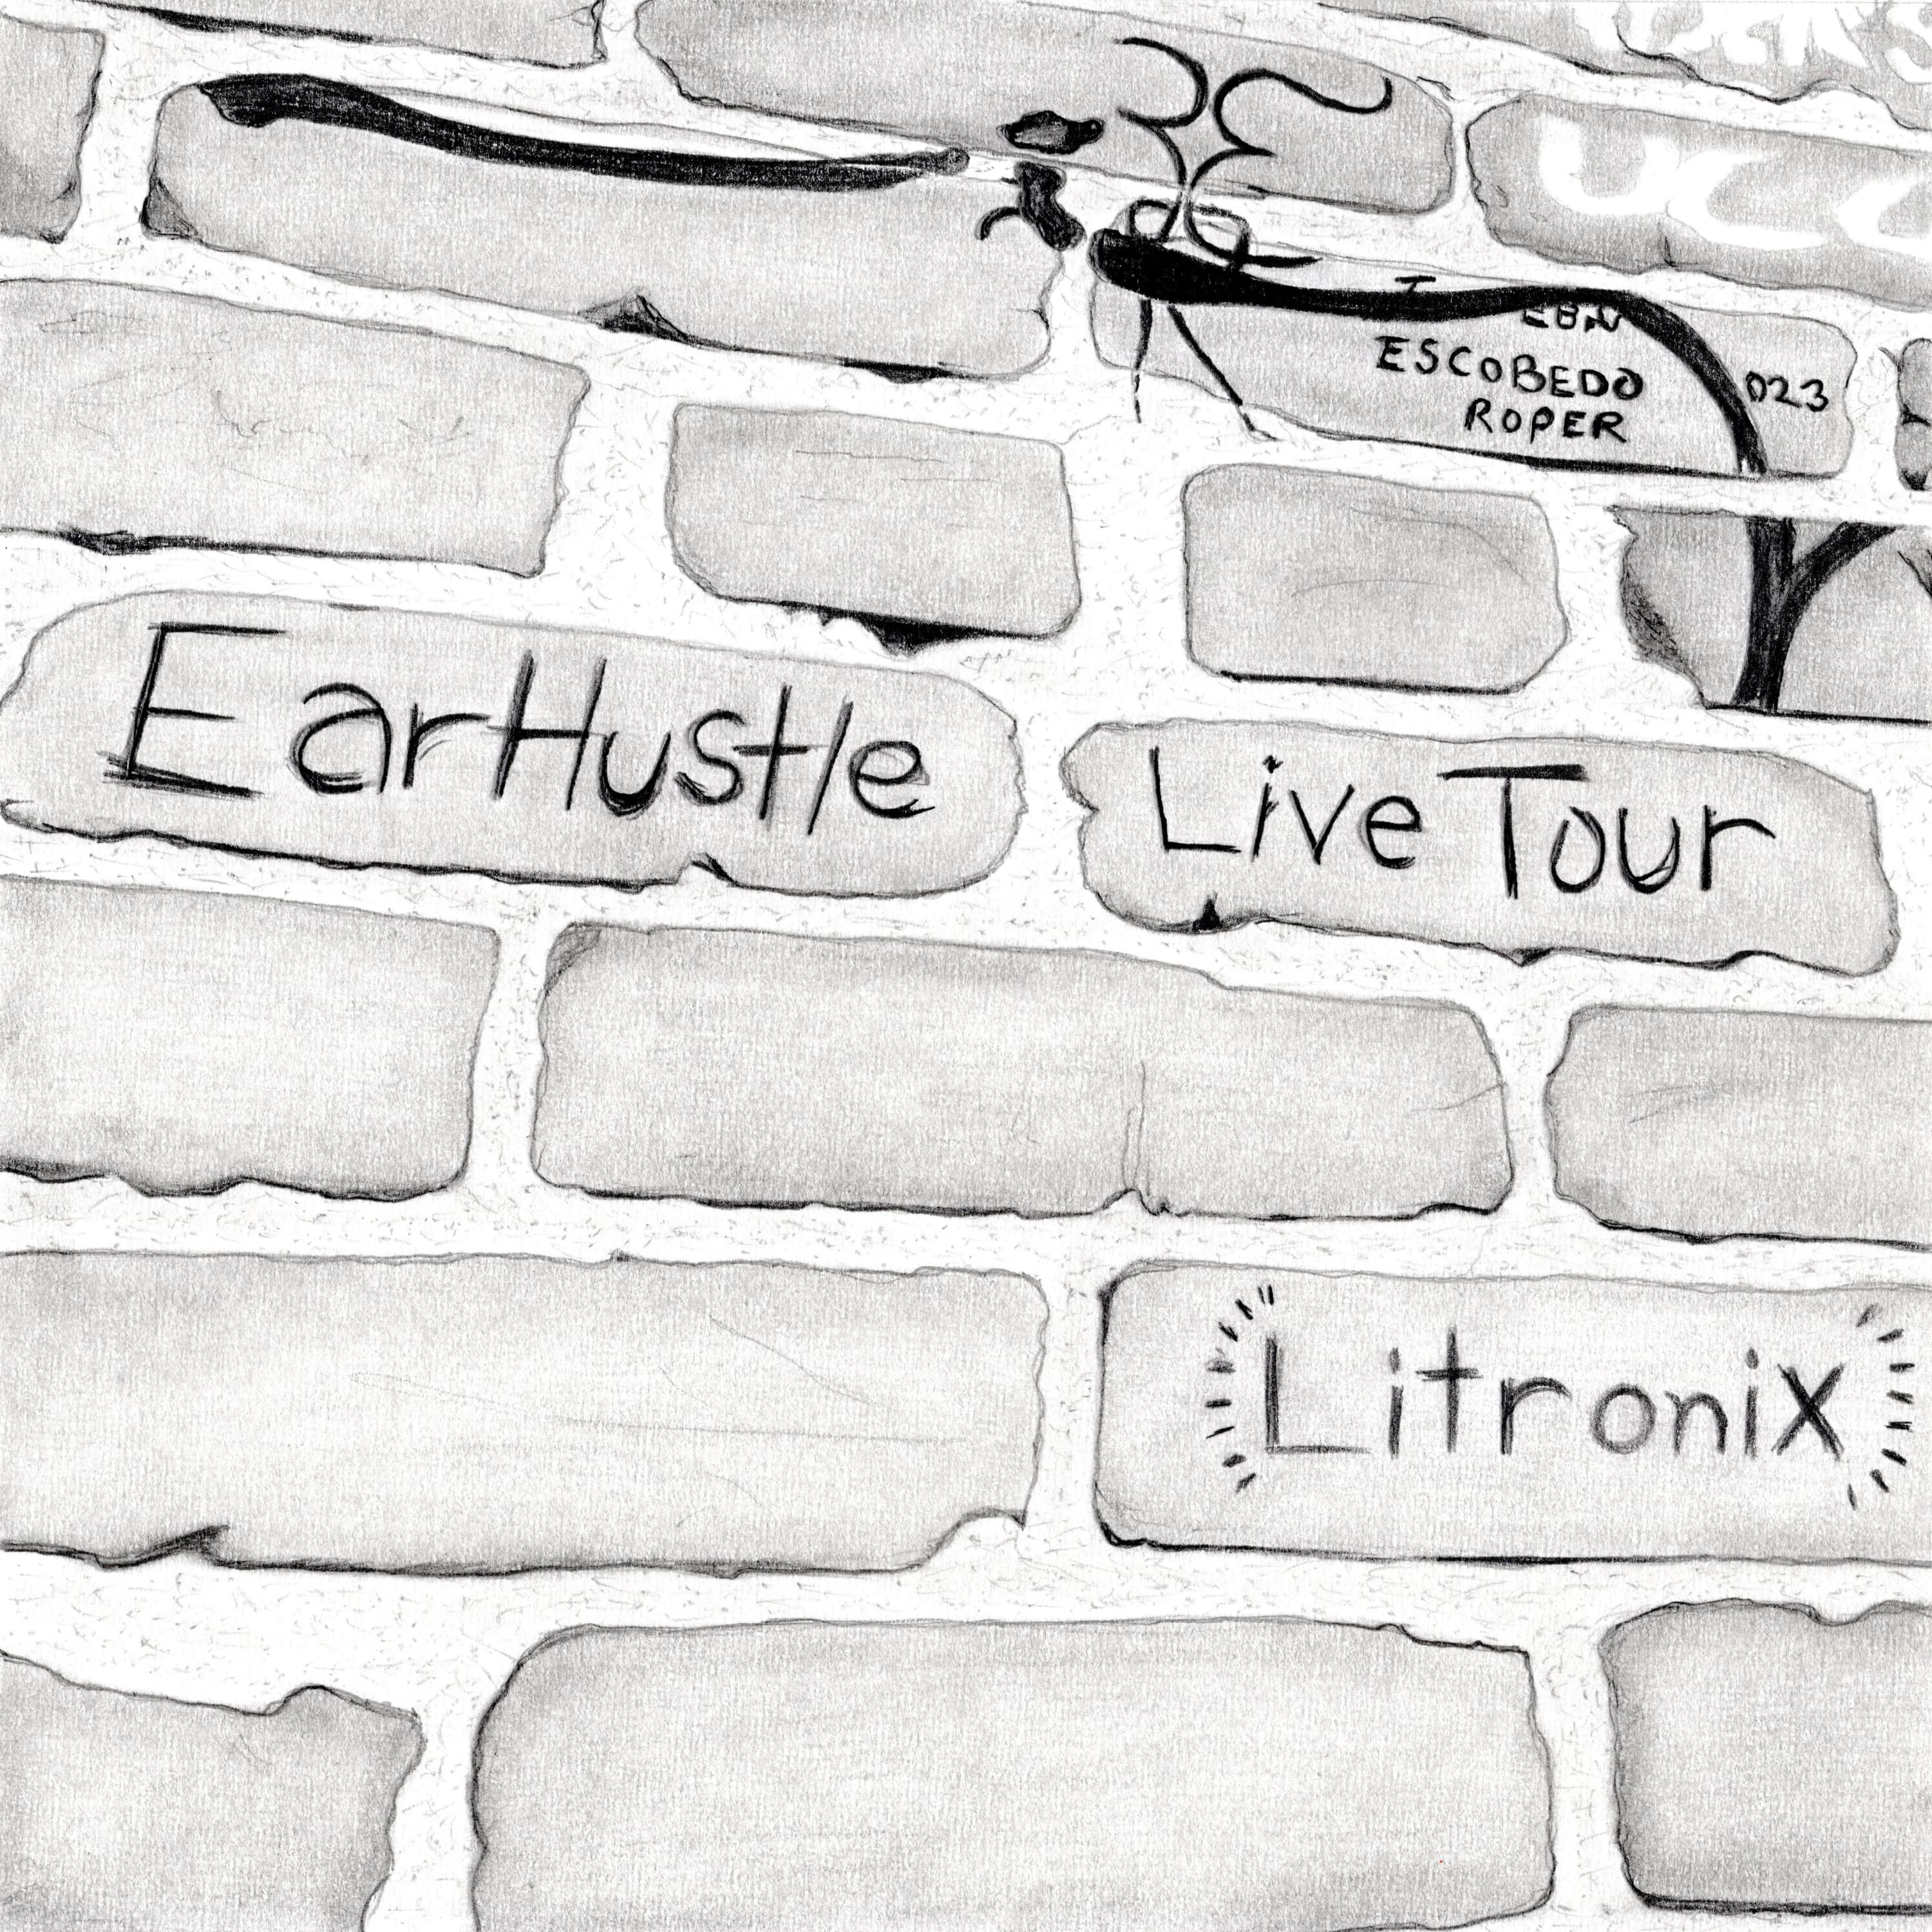 ESCOBEDO
ROPER
023
EarHustle
Live Tour
Litronix